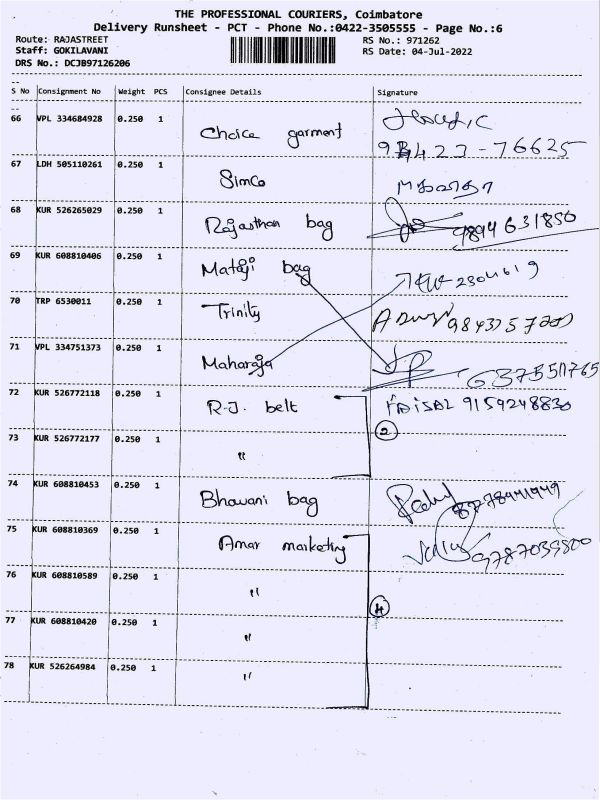 THE PROFESSIONAL COURIERS, Coimbatore
Delivery Runsheet - PCT - Phone No.:0422-3505555 - Page No.:6
Route: RAJASTREET RS No.: 971262
Staff: GOKILAVANI RS Date: 04-Jul-2022
DRS No.: DCJB97126206
S No Consignment No Weight PCS Consignee Details Signature
66 VPL 334684928 0.250 1 Choice garment
67 LDH 505110261 0.250 1 Simco
68 KUR 526265029 0.250 1 Rajasthan bag 9894631850
69 KUR 608810406 0.250 1 Mataji bag
70 TRP 6530011 0.250 1 Trinity
71 VPL 334751373 0.250 1 Maharaja
72 KUR 526772118 0.250 1 R.J. belt FAISAL 9159248830
73 KUR 526772177 0.250 1 " 2
74 KUR 608810453 0.250 1 Bhawani bag
75 KUR 608810369 0.250 1 Amar marketing 9787039800
76 KUR 608810589 0.250 1 " 4
77 KUR 608810420 0.250 1 "
78 KUR 526264984 0.250 1 "